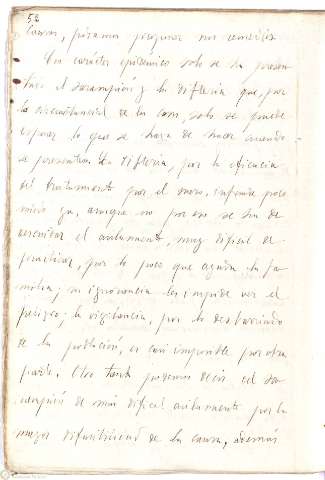 52
causas, pasamos
Con carácter epidémico solo se ha presen-
tado el sarampión y la difteria que, por
las circunstancias de la casa, solo se puede
lo que se haga de hacer cuando
se presentan. La difteria, por la eficacia
del tratamiento por el suero, infunde poco
miedo ya, aunque no por eso se ha de
descuidar el aislamiento, muy dificil de
practicar, por lo poco que ayuda la fa-
milia; su ignorancia les impide ver el
peligro; la vigilancia, por lo desparramado
de la población, es casi imposible por otra
parte. Otro tanto podemos decir del sa-
rampión de más dificil aislamiento por la
mayor difusibilidad de la causa, además